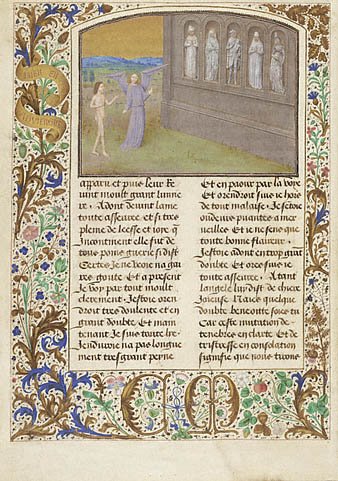 apparu et puis leur
uint moult grant lumie
re. Adont deuint lame
toute asseuree. et si tres
pleine de leesse et ioye q
incontinent elle fut de
tous poins guerie si dist
Certes Je ne
Et a present
Je voy par tout moult
clerement. Jestoie oren
droit tres doulente et en
grant doubte Et main
tenant Je suis toute
Jenduroie na pas longue
ment tresgrant peine
Et en paour par la voye
Et orendroit suis ie hors
de tout malaise. Jestoie
puantes a mer
ueilles Et ie ne sens que
toute bonne flaireur.
Jestoie adont en trop grant
doubte Et ores suis ie
toute asseuree. A tant
langele luy dist de chiere
ioieuse Naies quelque
doubte benoitte soies tu
Car ceste mutation de
tenebres en clarte Et de
tristresse en consolation
signifie que nous tirons
C M